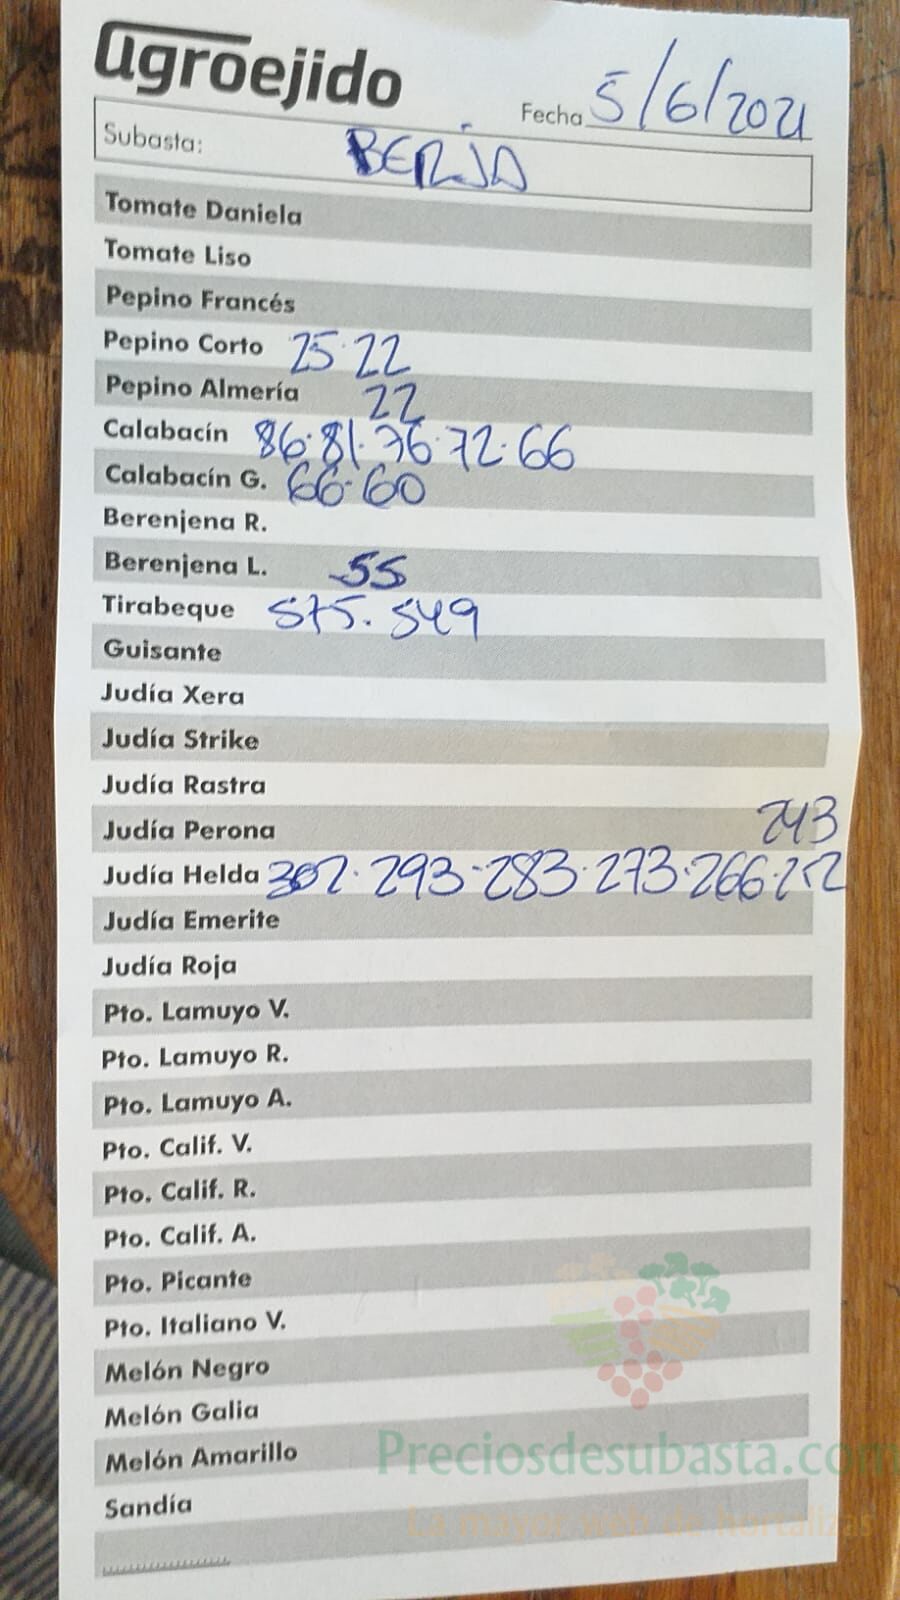 agroejido
Fecha 5/6/2021
Subasta: BERJA
Tomate Daniela
Tomate Liso
Pepino Francés
Pepino Corto 25·22
Pepino Almería 22
Calabacín 86·81·76·72·66
Calabacín G. 66·60
Berenjena R.
Berenjena L. 55
Tirabeque 575·549
Guisante
Judía Xera
Judía Strike
Judía Rastra
Judía Perona
243
Judía Helda 302·293·283·273·266·252
Judía Emerite
Judía Roja
Pto. Lamuyo V.
Pto. Lamuyo R.
Pto. Lamuyo A.
Pto. Calif. V.
Pto. Calif. R.
Pto. Calif. A.
Pto. Picante
Pto. Italiano V.
Melón Negro
Melón Galia
Melón Amarillo
Sandía
Preciosdesubasta.com
La mayor web de hortalizas